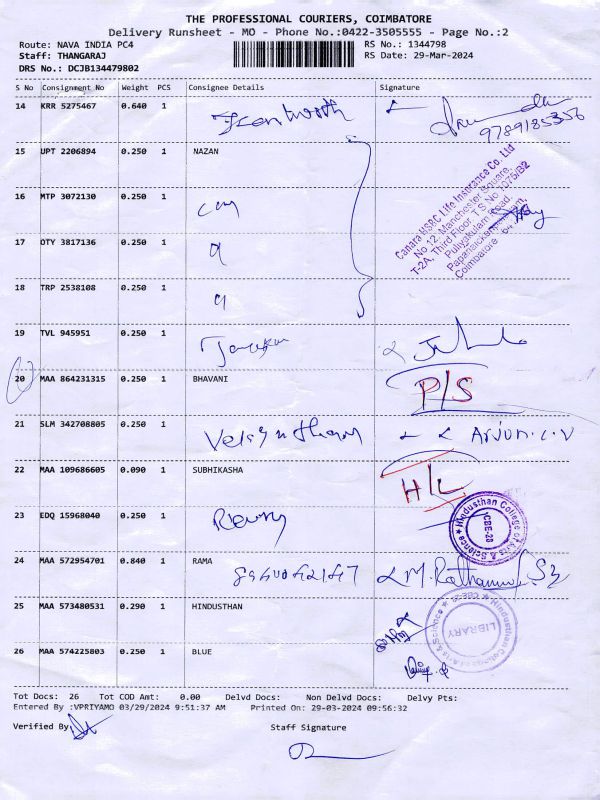 THE PROFESSIONAL COURIERS, COIMBATORE
Delivery Runsheet - MO - Phone No.:0422-3505555 - Page No.:2
Route: NAVA INDIA PC4 RS No.: 1344798
Staff: THANGARAJ RS Date: 29-Mar-2024
DRS No.: DCJB134479802
S No Consignment No Weight PCS Consignee Details Signature
14 KRR 5275467 0.640 1
9789185356
15 UPT 2206894 0.250 1 NAZAN
Canara HSBC Life Insurance Co. Ltd
No 12, Manchester Square,
T-2A, Third Floor, T S No 1075/B2
Puliyakulam Road,
16 MTP 3072130 0.250 1
Coimbatore
17 OTY 3817136 0.250 1
18 TRP 2538108 0.250 1
19 TVL 945951 0.250 1
20 MAA 864231315 0.250 1 BHAVANI P/S
21 SLM 342708805 0.250 1 Arjun.C.V
22 MAA 109686605 0.090 1 SUBHIKASHA H/L
23 EDQ 15968040 0.250 1
Hindusthan College of Arts & Science
CBE-28
24 MAA 572954701 0.840 1 RAMA
25 MAA 573480531 0.290 1 HINDUSTHAN
Hindusthan College of Arts & Science
LIBRARY
26 MAA 574225803 0.250 1 BLUE
Tot Docs: 26 Tot COD Amt: 0.00 Delvd Docs: Non Delvd Docs: Delvy Pts:
Entered By :VPRIYAMO 03/29/2024 9:51:37 AM Printed On: 29-03-2024 09:56:32
Verified By Staff Signature